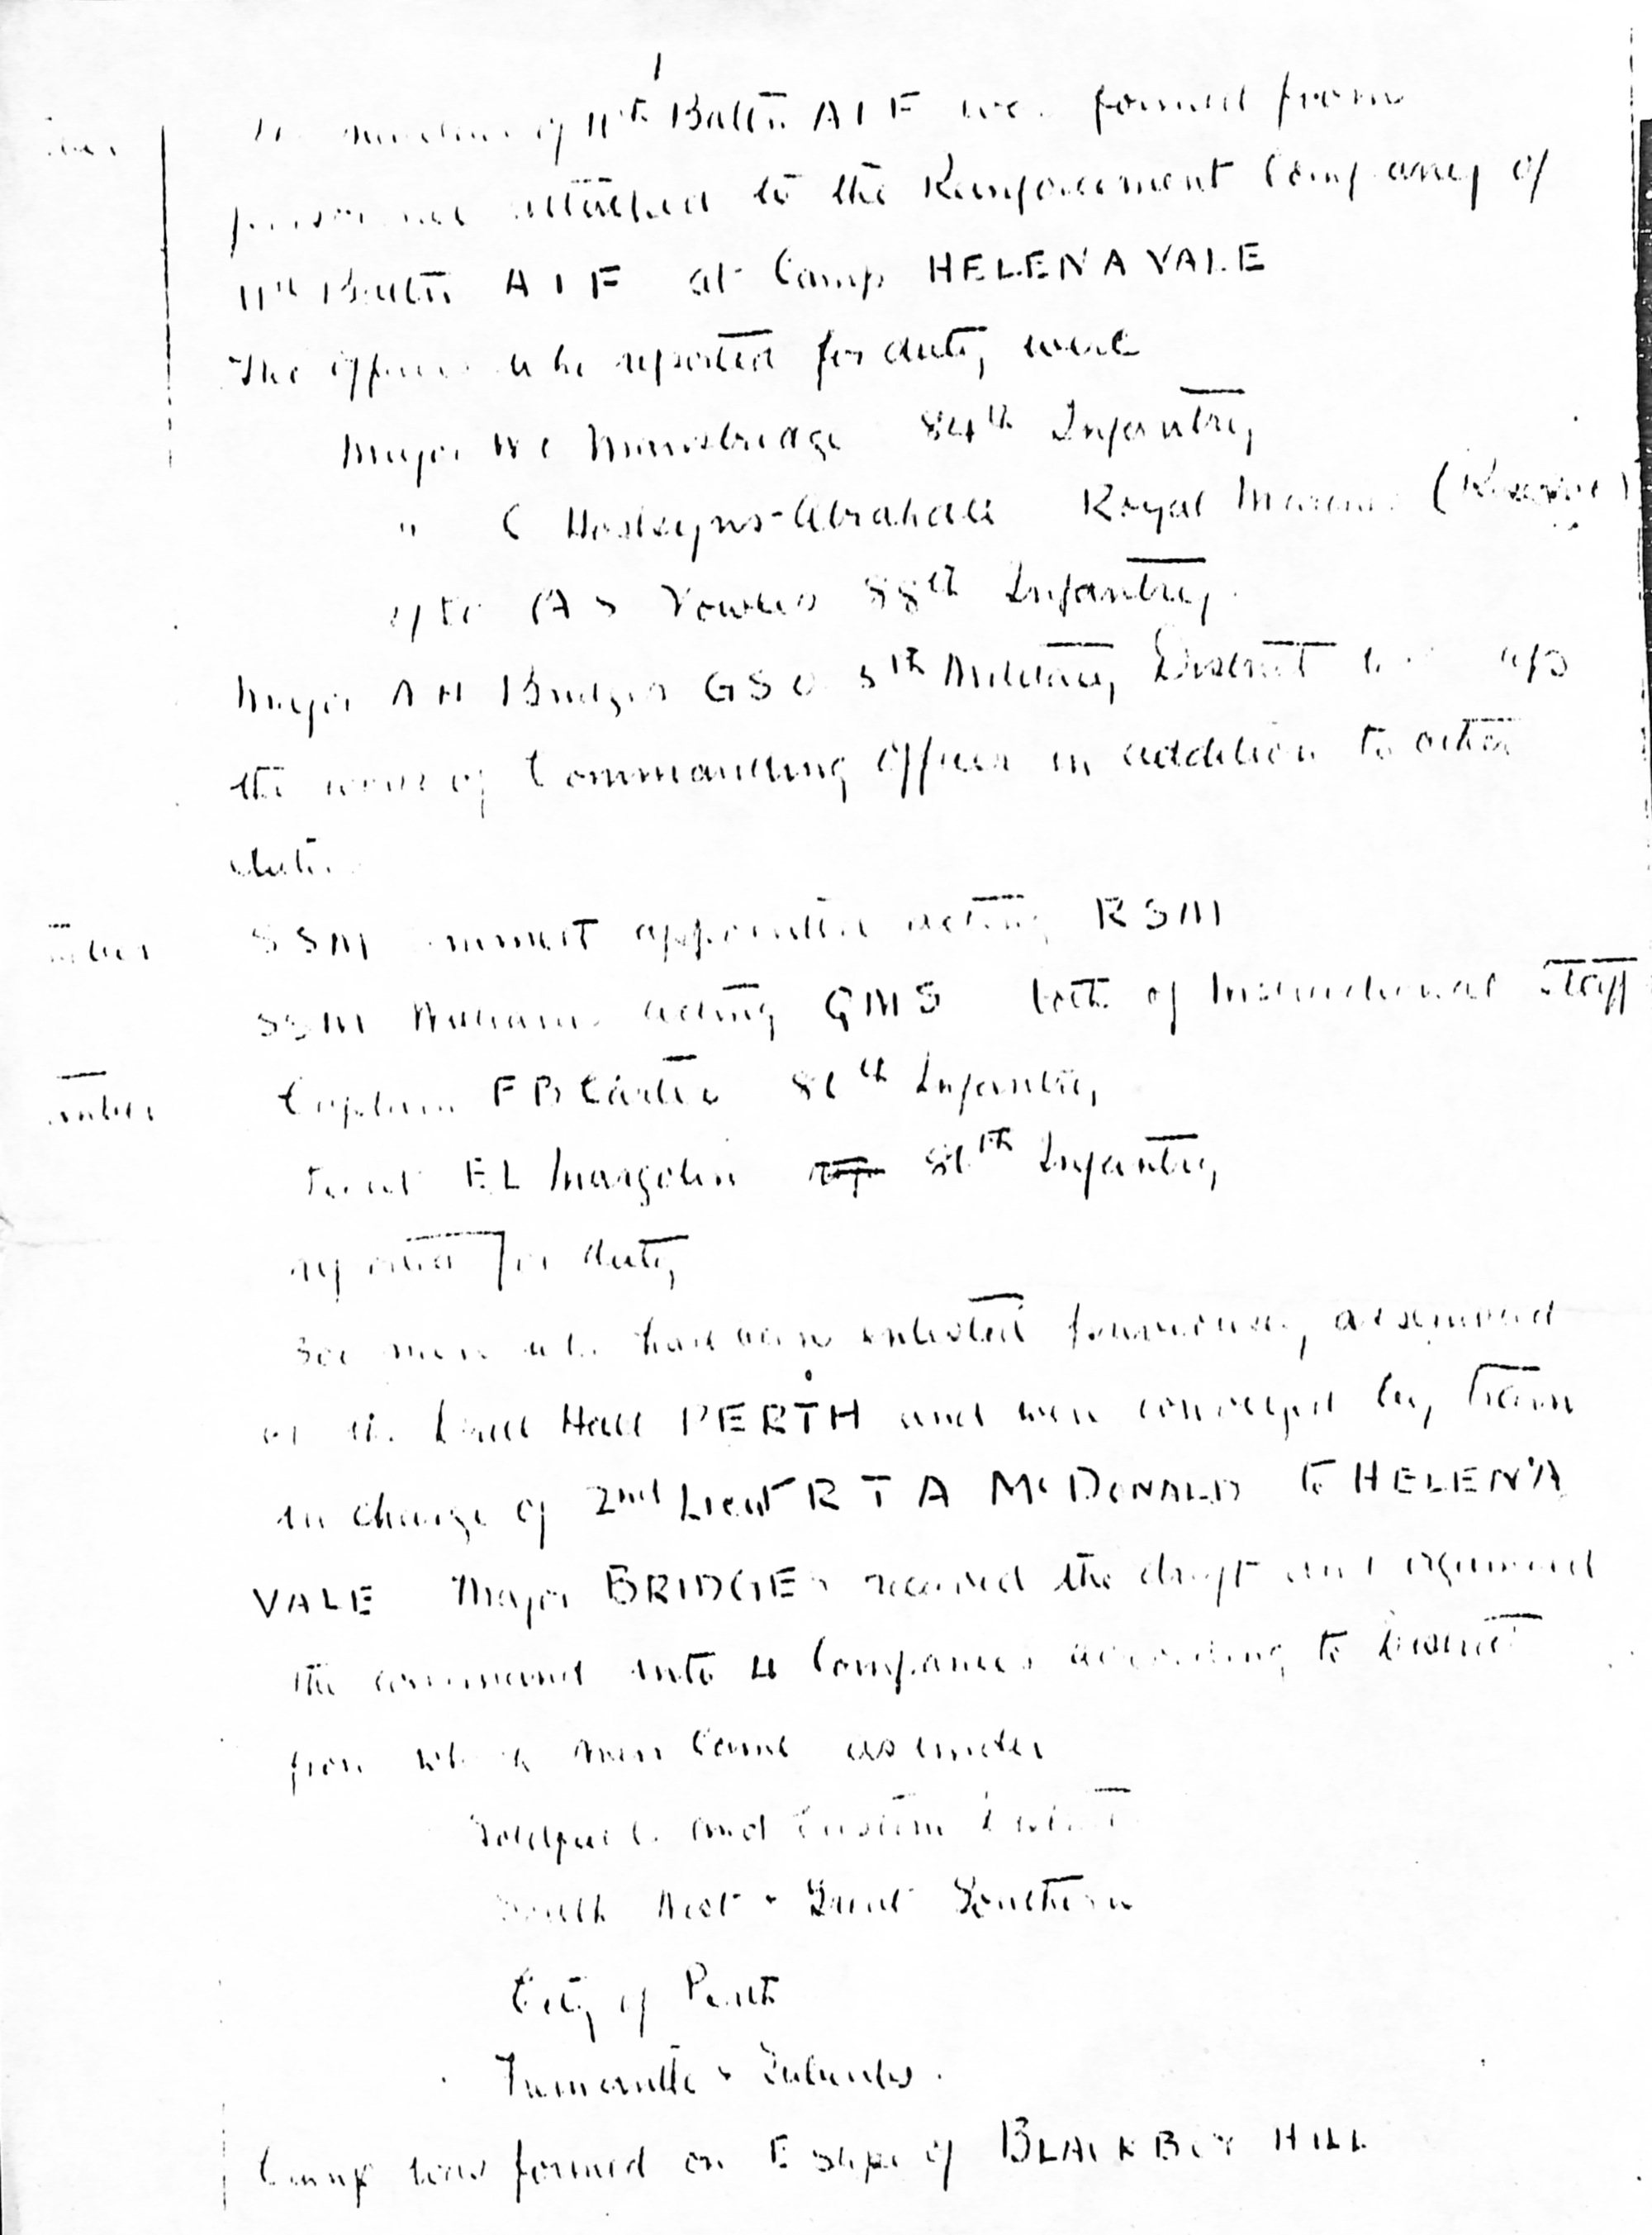 1
of 11th Battn A I F formed from
attached to the Reinforcement Company of
11th Battn A I F at Camp HELENA VALE
The officers who reported for duty were
Major Mansbridge 84th Infantry
" Hoskyns-Abrahall Royal Marines (Reserve)
A S Vowles 88th Infantry
Major A H Bridges GSO 5th Military District
the work of Commanding Officer in addition to other
duties
SSM appointed acting RSM
SSM Williams acting QMS both of Instructional Staff
Captain F B Carter Infantry
Lieut E L Margolin Infantry
reported for duty
men who had been enlisted previously assembled
at the Drill Hall PERTH and were conveyed by train
in charge of 2nd Lieut R T A McDONALD to HELENA
VALE Major BRIDGES received the draft and organised
the command into 4 Companies according to District
from which men came as under
Goldfields and Eastern District
South West & Great Southern
City of Perth
Fremantle & Suburbs.
Camp was formed on E slope of BLACKBOY HILL